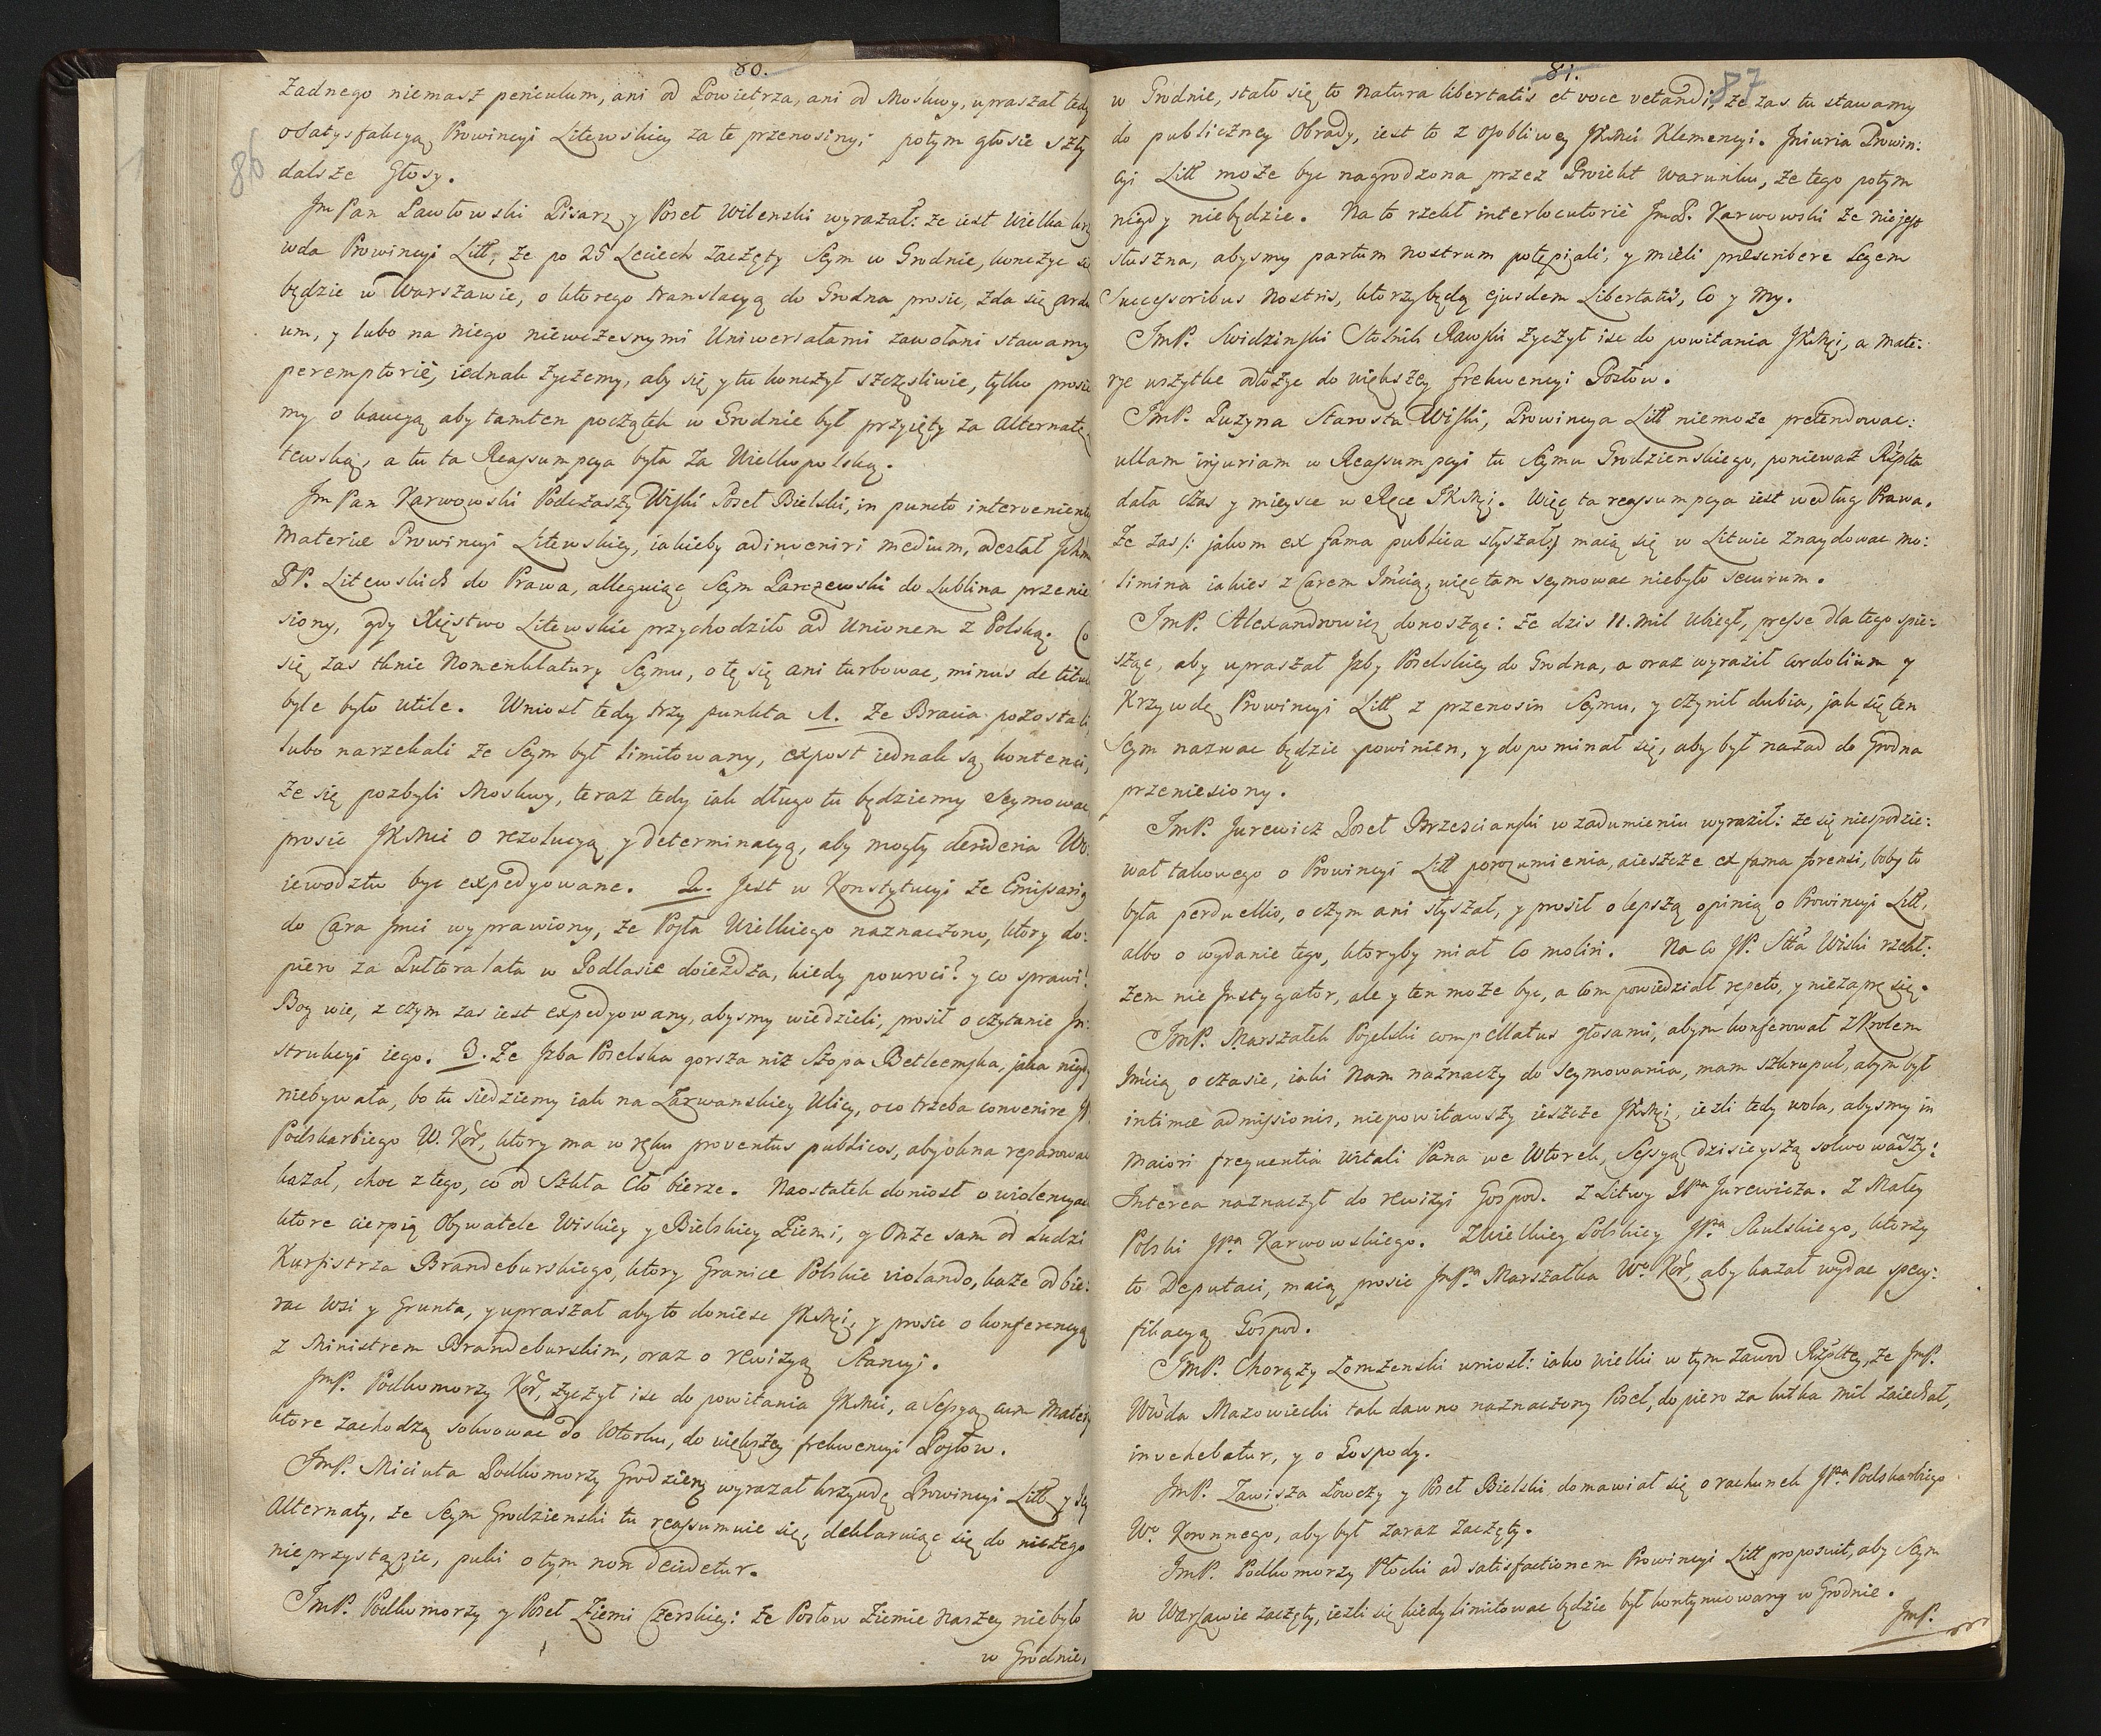 80.
86
Żadnego niemasz periculum, ani od Powietrza, ani od Moskwy, upraszał tedy
o Satysfakcyą Prowincyi Litewskiey za te przenosiny; potym głosie szły
dalsze Głosy.
Jm Pan Pawłowski Pisarz y Poseł Wilenski wyrazał: że iest Wielka krzy
wda Prowincyi Litt, że po 25 Leciech zaczęty Seym w Grodnie, konczyc się
będzie w Warszawie, o ktorego translacyą do Grodna prosic, zda się ardu
um, y lubo na niego niewczesnymi Uniwersałami zawołani stawamy
peremptoriè, iednak życzemy, aby się y tu konczył szczęsliwie, tylko prosie
my o kaucyą aby tamten początek w Grodnie był przyięty za Alternatę
tewską, a tu ta Reassumpcya była za Wielkopolską.
Jm Pan Karwowski Podczaszy Wiski Poseł Bielski, in puncto intervenientis
Materiæ Prowincyi Litewskiey, iakieby adinveniri medium, odesłał Ichm
PP. Litewskich do Prawa, alleguiąc Seym Parczewski do Lublina przenie
siony, gdy Xięstwo Litewskie przychodziło ad Unionem z Polską. Co
się zas tknie Nomenklatury Seymu, o tę się ani turbowac, minùs de titulo
byle było utile. Wniosł tedy trzy punkta 1. Że Bracia pozostali,
lubo narzekali że Seym był limitowany, expost iednak są kontenci,
że się pozbyli Moskwy, teraz tedy iak długo tu będziemy Seymowac
prosic JKMci o rezolucyą y determinacyą, aby mogły desideria Wo:
iewodztw byc expedyowane. 2. Jest w Konstytucyi że Emissarius
do Cara Jmci wyprawiony, że Posła Wielkiego naznaczono, ktory do:
piero za Pułtora lata w Podlasie doieżdża, kiedy powroci? y co sprawi?
Bog wie, z czym zas iest expedyowany, abysmy wiedzieli, prosił o czytanie In:
strukcyi iego. 3. Że Izba Poselska gorsza niż Szopa Betleemska, jaka nigdy
niebywała, bo tu siedziemy iak na Zarwanskiey Ulicy, o co trzeba convenire JP.
Podskarbiego W. Kor, ktory ma w ręku proventus publicos, aby okna reparowac
kazał, choc z tego, co od Szkła Cło bierze. Naostatek doniosł o wiolencyac
ktore cierpią Obywatele Wiskiey y Bielskiey Ziemi, y Onże sam od Ludzi
Kurfistrza Brandeburskiego, ktory Granice Polskie violando, każe odbie:
rac Wsi y Grunta, y upraszał aby to doniesc JKMci, y prosic o konferencyą
z Ministrem Brandeburskim, oraz o rewizyą Stancyi.
JmP. Podkomorzy Kor, życzył isc do powitania JKMci, a Sessyą cum Materiis
ktore zachodzą solwowac do Wtorku, do większey frekwencyi Posłow.
JmP. Miciuta Podkomorzy Grodzien, wyrazał krzywdę Prowincyi Litt y Jey
Alternaty, że Seym Grodzienski tu reassumuie się, deklaruiąc się do niczego
nieprzystąpic, puki o tym non decidetur.
JmP. Podkomorzy y Poseł Ziemi Czerskiey: że Posłow Ziemie Naszey niebyło
w Grodnie,
81.
87
w Grodnie, stało się to natura libertatis et voce vetandi, że zas tu stawamy
do publiczney Obrady, iest to z osobliwey JKMci Klemencyi. Iniuria Prowin:
cyi Litt może byc nagrodzona przez Proiekt warunku, że tego potym
nigdy niebędzie. Na to rzekł interlocutoriè JmP. Karwowski że niejest
słuszna, abysmy partum nostrum potępiali, y mieli præscribere Legem
Successoribus Nostris, ktorzy będą ejusdem Libertatis, Co y My.
JmP. Swidzinski Stolnik Rawski życzył isc do powitania JKMci, a mate:
rye wszytkie odłożyc do większey frekwencyi Posłow.
JmP. Puzyna Starosta Wiski, Prowincya Litt niemoże pretendowac:
ullam injuriam w Reassumpcyi tu Seymu Grodzienskiego, ponieważ Rzplta
dała czas y mieysce w Ręce JKMci. Więc ta reassumpcya iest według Prawa.
Że zas /: jakom ex fama publica słyszał :/ maią się w Litwie znaydowac mo:
limina iakies z Carem Jmcią, więc tam seymowac niebyło securum.
JmP. Alexandrowicz donosząc: że dzis 11. mil ubiegł, presse dla tego spie:
sząc, aby upraszał Izby Poselskiey do Grodna, a oraz wyraził cordolium y
Krzywdę Prowincyi Litt z przenosin Seymu, y czynił dubia, jak się ten
Seym nazwac będzie powinien, y dopominał się, aby był nazad do Grodna
przeniesiony.
JmP. Jurewicz Poseł Brzescianski w zadumieniu wyraził: że się niespodzie:
wał takowego o Prowincyi Litt porozumienia, a ieszcze ex fama forensi, boby to
była perduellio, o czym ani słyszał, y prosił o lepszą opinią o Prowincyi Litt,
albo o wydanie tego, ktoryby miał Co moliri. Na Co JP. Stta Wiski rzekł:
żem nie Instygator, ale y ten może byc, a Com powiedział repeto, y niezaprę się.
JmP. Marszałek Poselski compellatus głosami, abym konferował z Krolem
Jmcią o czasie, iaki Nam naznaczy do Seymowania, mam szkrupuł, abym był
intimæ admissionis, niepowitawszy ieszcze JKMci, iezli tedy wola, abysmy in
maiori frequentia witali Pana we Wtorek, Sessyą dzisieyszą solwowawszy:
Interea naznaczył do rewizyi Gospod. Z Litwy JPa Jurewicza. Z Małey
Polski JPa Karwowskiego. Z Wielkiey Polskiey JPa Skulskiego, ktorzy
to Deputaci, maią prosic JmPa Marszałka Wo Kor, aby kazał wydac specy:
fikacyą Gospod.
JmP. Chorąży Łomżenski wniosł: iako wielki w tym zawod Rzpltey, że JmP.
Wwda Mazowiecki tak dawno naznaczony Poseł, dopiero za kilka mil zaiechał,
invehebatur, y o Gospody.
JmP. Zawisza Łowczy y Poseł Bielski, domawiał się o rachunek JPa Podskarbiego
Wo Koronnego, aby był zaraz zaczęty.
JmP. Podkomorzy Płocki ad satisfactionem Prowincyi Litt proposuit, aby Seym
w Warszawie zaczęty, iezli się kiedy limitowac będzie był kontynuowany w Grodnie.
JmP.